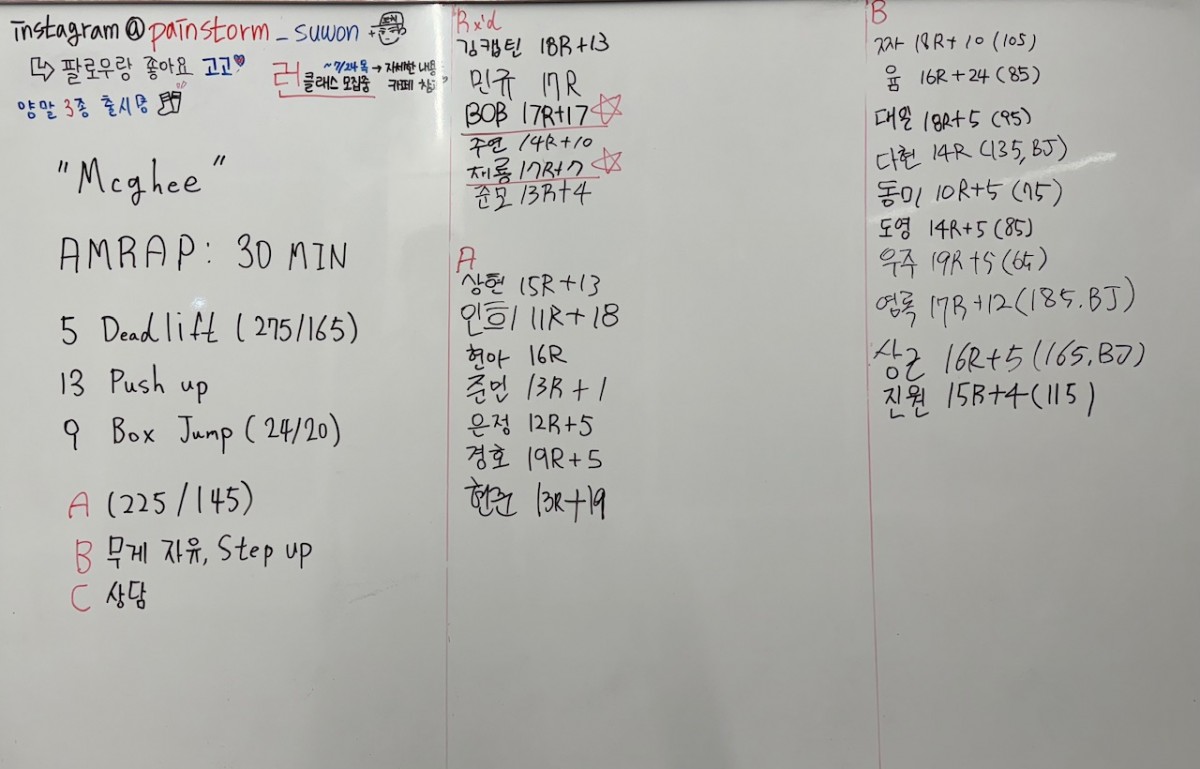 instagram@painstorm_suwon
팔로우랑 좋아요 고고♥
양말 3종 출시중
러 ~7/24목 → 자세한 내용
클래스 모집중 카페 참
"Mcghee"
AMRAP: 30 MIN
5 Deadlift (275/165)
13 Push up
9 Box Jump (24/20)
A (225/145)
B 무게 자유, Step up
C 상담
Rx'd
김캡틴 18R+13
민규 17R
BOB 17R+17 ☆
주연 14R+10
채룡 17R+7 ☆
준모 13R+4
A
상현 15R+13
인트1 11R+18
현아 16R
준민 13R+1
은정 12R+5
경호 19R+5
현준 13R+19
B
쟈 18R+10 (105)
윰 16R+24 (85)
대윤 18R+5 (95)
다현 14R (135, BJ)
동미 10R+5 (75)
도영 14R+5 (85)
우주 19R+5 (65)
영록 17R+12 (185. BJ)
상근 16R+5 (165, BJ)
진원 15R+4 (115)